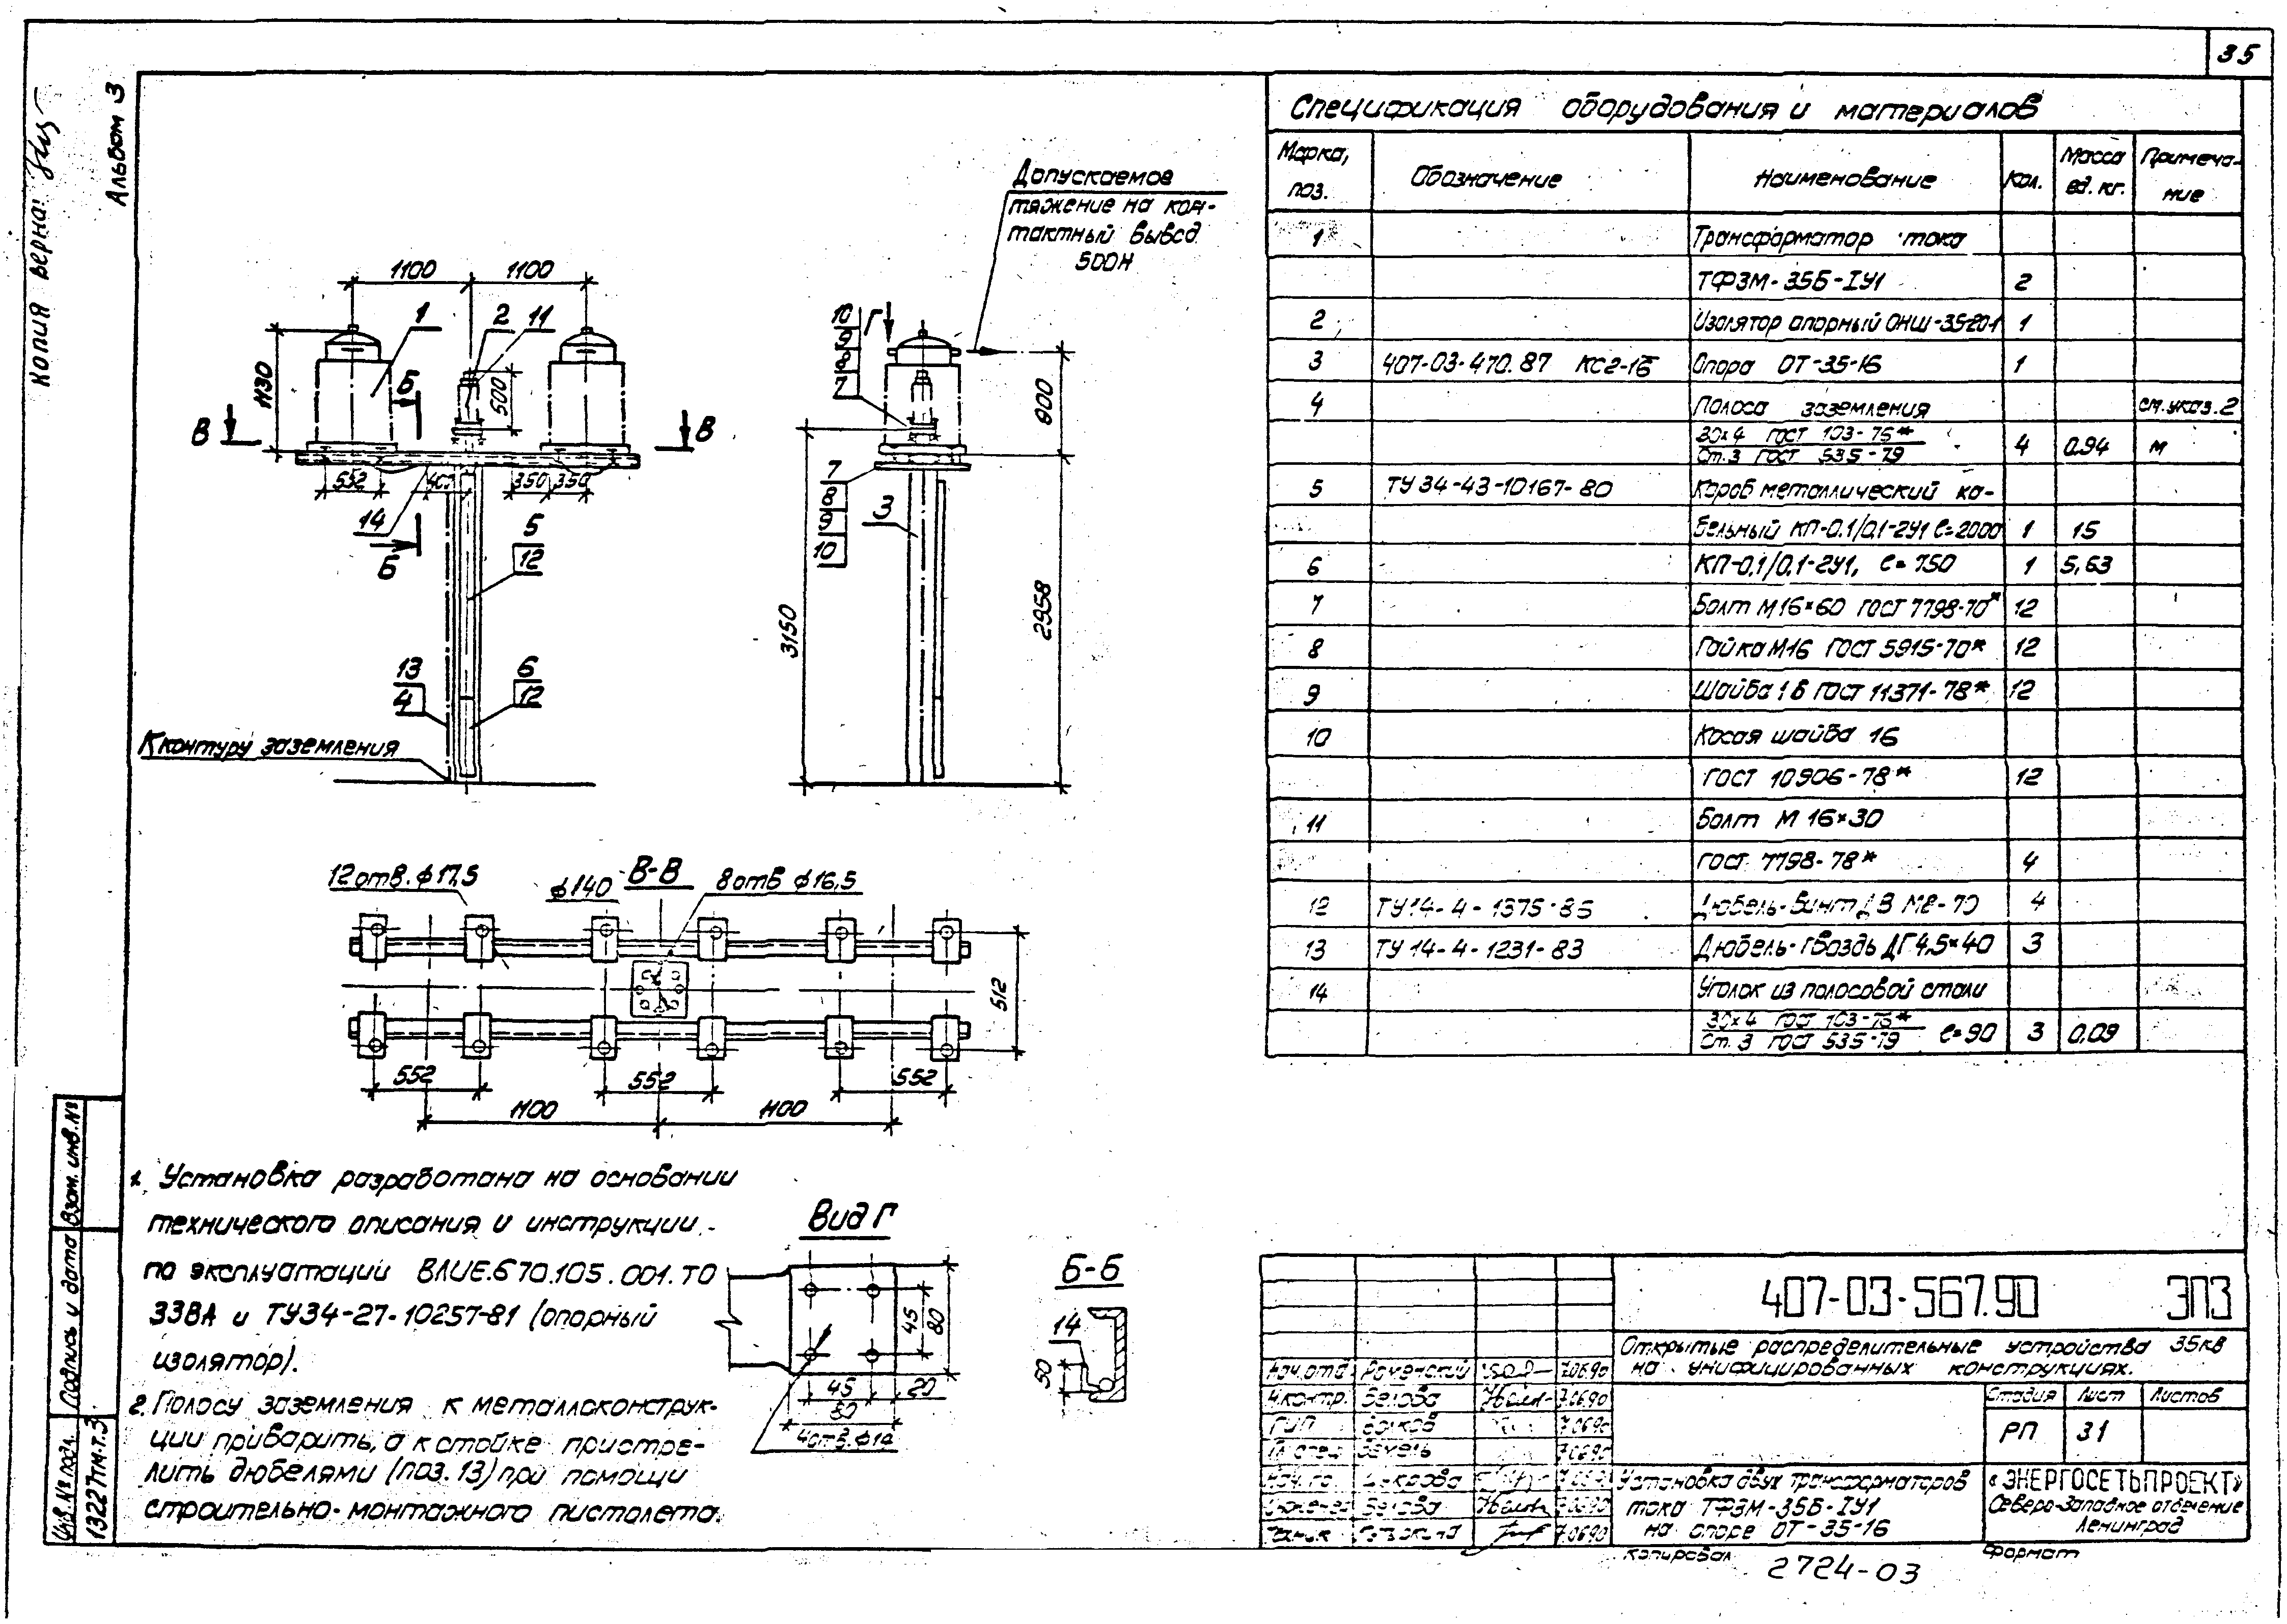 35
Копия верна:
Альбом 3
Спецификация оборудования и материалов
Марка, поз. Обозначение Наименование Кол. Масса ед. кг. Примечание
1 Трансформатор тока
ТФЗМ-35Б-IУ1 2
2 Изолятор опорный ОНШ-35-20-1 1
3 407-03-470.87 КС2-16 Опора ОТ-35-16 1
4 Полоса заземления см. указ. 2
30×4 ГОСТ 103-76*
Ст. 3 ГОСТ 535-79 4 0.94 м
5 ТУ 34-43-10167-80 Короб металлический ка-
бельный КП-0.1/0,1-2У1 ℓ=2000 1 15
6 КП-0,1/0,1-2У1, ℓ=750 1 5,63
7 Болт М16×60 ГОСТ 7798-70* 12
8 Гайка М16 ГОСТ 5915-70* 12
9 Шайба 16 ГОСТ 11371-78* 12
10 Косая шайба 16
ГОСТ 10906-78* 12
11 Болт М 16×30
ГОСТ 7798-78* 4
12 ТУ 14-4-1375-85 Дюбель-винт ДВ М8-70 4
13 ТУ 14-4-1231-83 Дюбель-гвоздь ДГ 4,5×40 3
14 Уголок из полосовой стали
30×4 ГОСТ 103-76*
Ст. 3 ГОСТ 535-79 ℓ=90 3 0,09
Допускаемое
тяжение на кон-
тактный вывод
500Н
1100 1100
1 2 11
1130
500
Б
В В
552 400 350 350
14
Б
5
12
13
4
6
12
К контуру заземления
10
9
8
7
Г
7
8
9
10
3
800
3150
2958
В-В
12 отв. ф17,5
ф140
8 отв ф16,5
512
552 552 552
1100 1100
1. Установка разработана на основании
технического описания и инструкции
по эксплуатации ВЛИЕ.670.105.001.ТО
ЗЗВА и ТУ34-27-10257-81 (опорный
изолятор).
2. Полосу заземления к металлоконструк-
ции приварить, а к стойке пристре-
лить дюбелями (поз. 13) при помощи
строительно-монтажного пистолета.
Вид Г
45
80
45 20
80
4 отв. ф14
Б-Б
14
50
407-03-567.90 ЭП3
Открытые распределительные устройства 35кв
на унифицированных конструкциях.
Нач.отд Роменский 7.06.90
Н.контр. Белова 7.06.90
ГИП 7.06.90
7.06.90
Белова 7.06.90
7.06.90
Стадия Лист Листов
РП 31
Установка двух трансформаторов
тока ТФЗМ-35Б-IУ1
на опоре ОТ-35-16
«ЭНЕРГОСЕТЬПРОЕКТ»
Северо-Западное отделение
Ленинград
Копировал
2724-03
Формат
Взам. инв. №
Подпись и дата
Инв. № подл.
13227тм-т.3